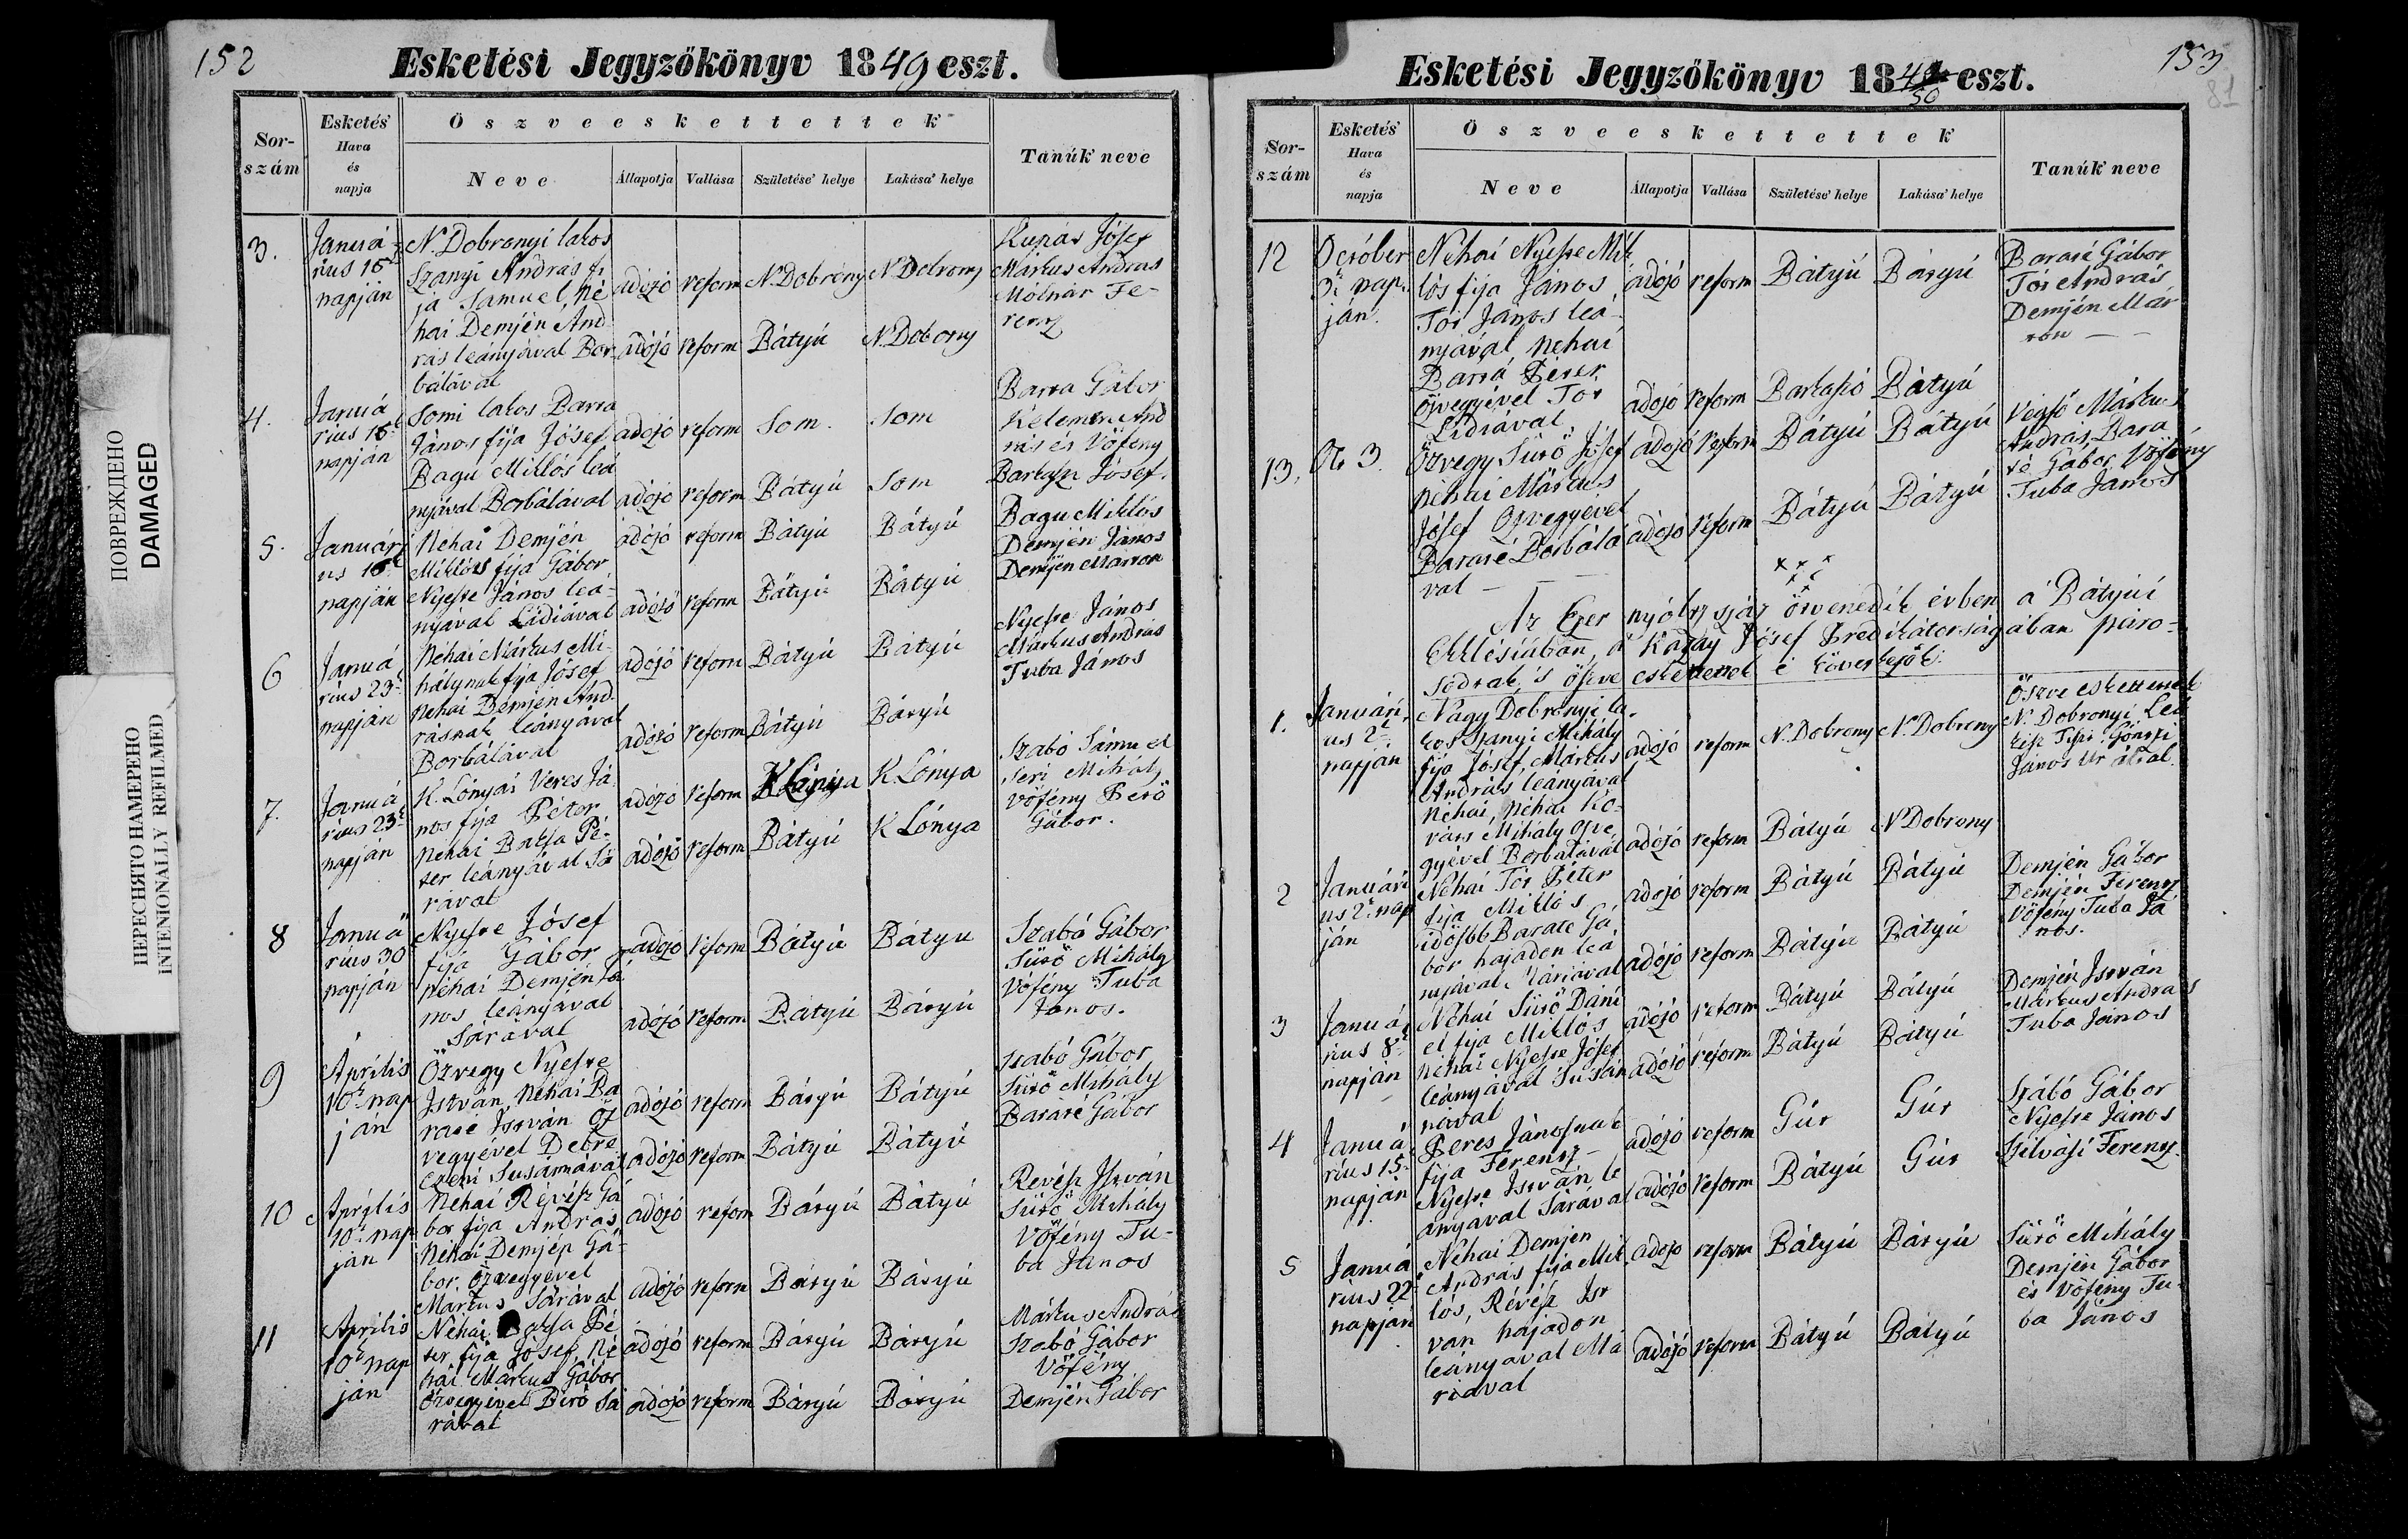 152
Esketési Jegyzőkönyv 1849 eszt.
Sor-szám
Esketés' Hava és napja
Öszveeskettettek
Neve
Állapotja
Vallása
Születése' helye
Lakása' helye
Tanúk' neve
3.
Januá-
rius 16
napján
N. Dobronyi lakos
Szanyi András fi
ja Samuel, Né
hai Demjén And
rás leányával Bor
bálával
adózó reform N. Dobrony N. Dobrony
adózó reform Bátyú N. Dobrony
Kunás Jósef
Márkus András
Mólnár Fe-
rencz
4.
Januá
rius 16
napján
Somi lakos Barta
János fija Jósef,
Bagu Miklós leá
nyával Borbálával
adózó reform Som. Som
adózó reform Bátyú Som
Barta Gábor
Kelemen And
rás és Vőfény
Jósef.
5.
Januári
us 16
napján
Néhai Demjén
Miklós fija Gábor
Nyeste János leá-
nyával Lidiával
adózó reform Bátyú Bátyú
adózó reform Bátyú Bátyú
Bagu Miklós
Demjén János
Demjén Márton
6
Januá
rius 23
napján
Néhai Márkus Mi-
hálynak fija Jósef
Néhai Demjén And-
rásnak leányával
Borbálával
adózó reform Bátyú Bátyú
adózó reform Bátyú Bátyú
Nyeste János
Márkus András
Tuba János
7.
Januá
rius 23
napján
K. Lónyai Veres Já
nos fija Péter
Néhai Baksa Pé-
ter leányával Sá
rával
adózó reform K Lónya K Lónya
adózó reform Bátyú K Lónya
Szabó Sámuel
Seri Mihály
Vőfény Pető
Gábor.
8
Januá
rius 30
napján
Nyeste Jósef
fija Gábor
néhai Demjén Já
nos leányával
Sárával
adózó reform Bátyú Bátyu
adózó reform Bátyú Bátyú
Szabó Gábor
Sütő Mihály
Vőfény Tuba
János.
9
Áprilís
10 nap
ján
Özvegy Nyeste
István, Néhai Ba
raté István Öz
vegyével Debre
czeni Susánnával
adózó reform Bátyú Bátyú
adózó reform Bátyú Bátyú
Szabó Gábor
Sütő Mihály
Baraté Gábor
10
Áprílís
10 nap
ján
Néhai Révész Gá
bor fija András
Néhai Demjén Gá-
bor Özvegyével
Márkus Sárával
adózó reform Bátyú Bátyú
adózó reform Bátyú Bátyú
Revész István
Sütő Mihály
Vőfény Tu-
ba János
11
Áprílís
10 nap
ján
Néhai Baksa Pé
ter fija Jósef, Né
hai Márkus Gábor
özvegyével Bíró Sá
rával
adózó reform Bátyú Bátyú
adózó reform Bátyú Bátyú
Márkus András
Szabó Gábor
Vőfény
Demjén Gábor
153
81
Esketési Jegyzőkönyv 1849 50 eszt.
Sor-szám
Esketés' Hava és napja
Öszveeskettettek
Neve
Állapotja
Vallása
Születése' helye
Lakása' helye
Tanúk' neve
12
October
3 nap-
ján.
Néhai Nyeste Mik
lós fija János,
Tót János leá-
nyával, néhai
Péter
özvegyével Tót
Lidiával.
adózó reform Bátyú Bátyú
adózó reform Bátyú
Baraté Gábor
Tót András
Demjén Már
ton
13.
Ok 3.
Özvegy Sütő Jósef
Néhai Márkus
Jósef Özvegyével
Baraté Borbálá
val
adózó reform Bátyú Bátyú
adózó reform Bátyú Bátyú
Végső Márkus
András, Bara
té Gábor, Vőfény
Tuba János
Az Ezer nyólcz száz ötvenedik évben á Bátyúi
Ekklésiában, á Kazay Jósef Predikátorságában páro-
sodtak, 's öszve eskettettek é következők:
1.
Januári
us 2
napján
Nagy Dobronyi la-
kos Szanyi Mihály
fija Jósef, Márkus
András leányával
Néhai, Néhai Ko-
váts Mihály özve
gyével Borbálával
adózó reform N. Dobrony N. Dobrony
adózó reform Bátyú N Dobrony
Öszve eskettettek
N. Dobronyi Lel
kész Gönczi
János Úr által.
2
Januári
us 2 nap
ján
Néhai Tót Péter
fija Miklós
idősbb Barate Gá
bor hajadon leá
nyával Máriával
adózó reform Bátyú Bátyú
adózó reform Bátyú Bátyú
Demjén Gábor
Demjén Ferencz
Vőfény Tuba Já
nos.
3
Januá
rius 8
napján
Néhai Sütő Dáni
el fija Miklós
néhai Nyeste Jósef
leányával Susán
nával
adózó reform Bátyú Bátyú
adózó reform Bátyú Bátyú
Demjén István
Márkus András
Tuba János
4
Januá
rius 15
napján
Peres Jánosnak
fija Ferencz
Nyeste István le
ányával Sárával
adózó reform Gút Gút
adózó reform Bátyú Gút
Szabó Gábor
Nyeste János
Szilvási Ferencz
5
Januá
rius 22
napján
Néhai Demjén
András fija Mik
lós, Révész Ist
ván hajadon
leányával Má
riával
adózó reform Bátyú Bátyú
adózó reform Bátyú Bátyú
Sütő Mihály
Demjén Gábor
és Vőfény Tu-
ba János
ПОВРЕЖДЕНО
DAMAGED
ПЕРЕСНЯТО НАМЕРЕНО
INTENIONALLY REFILMED